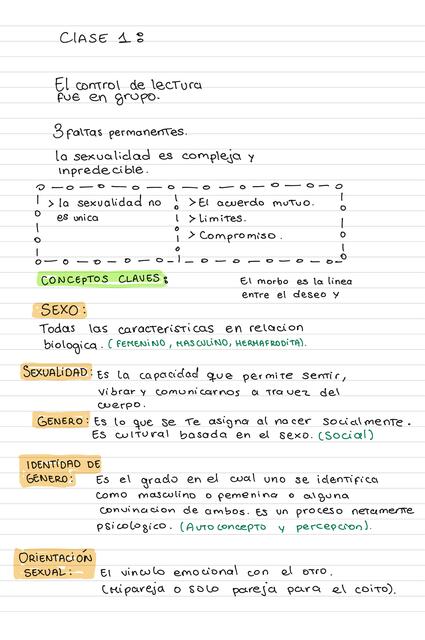 CLASE 1:
El control de lectura
fue en grupo.
3 faltas permanentes.
la sexualidad es compleja y
inpredecible.
> la sexualidad no
es unica
> El acuerdo mutuo.
> Limites.
> Compromiso.
CONCEPTOS CLAVES:
El morbo es la linea
entre el deseo y
SEXO:
Todas las caracteristicas en relacion
biologica. (FEMENINO, MASCULINO, HERMAFRODITA).
SEXUALIDAD: Es la capacidad que permite sentir,
vibrar y comunicarnos a travez del
cuerpo.
GENERO: Es lo que se te asigna al nacer socialmente.
Es cultural basada en el sexo. (Social)
IDENTIDAD DE
GENERO: Es el grado en el cual uno se identifica
como masculino o femenina o alguna
convinacion de ambos. Es un proceso netamente
psicologico. (Autoconcepto y percepcion).
ORIENTACIÓN
SEXUAL: El vinculo emocional con el otro.
(Mi pareja o solo pareja para el coito).